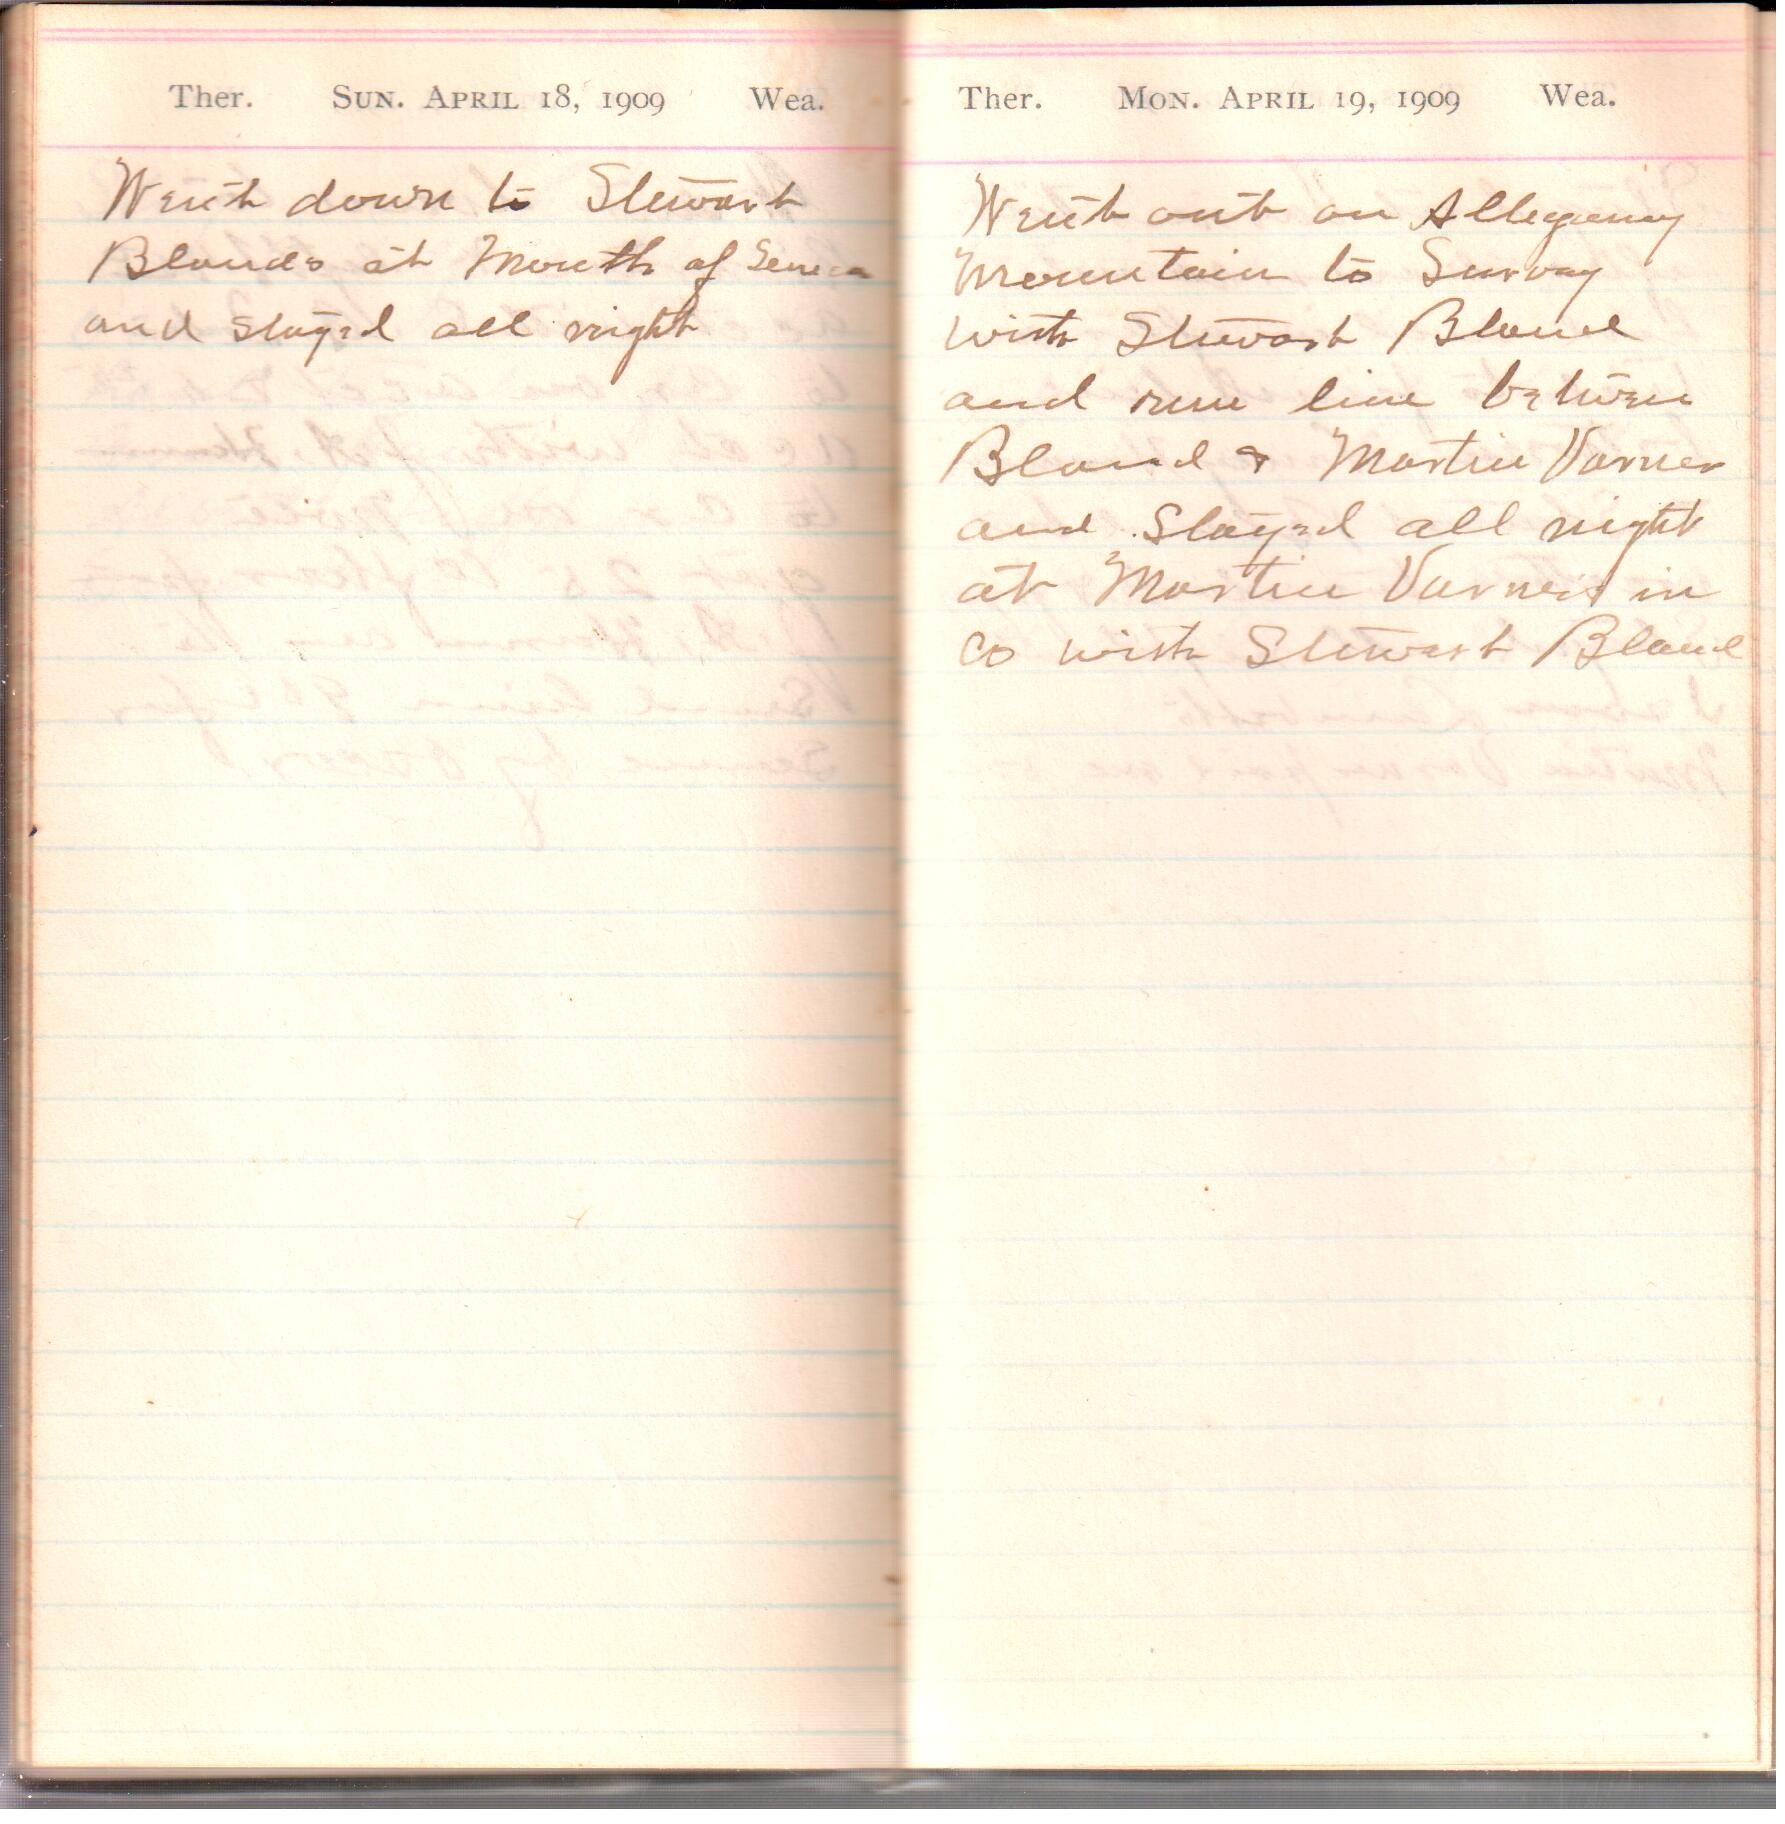 Ther. SUN. APRIL 18, 1909 Wea.
Went down to Stewart
Blands at Mouth of Seneca
and stayed all night
Ther. MON. APRIL 19, 1909 Wea.
Went out on Allegany
Mountain to Survay
with Stewart Bland
and run line betwen
Bland & Martin Varner
and Stayed all night
at Martin Varners in
co with Stewart Bland